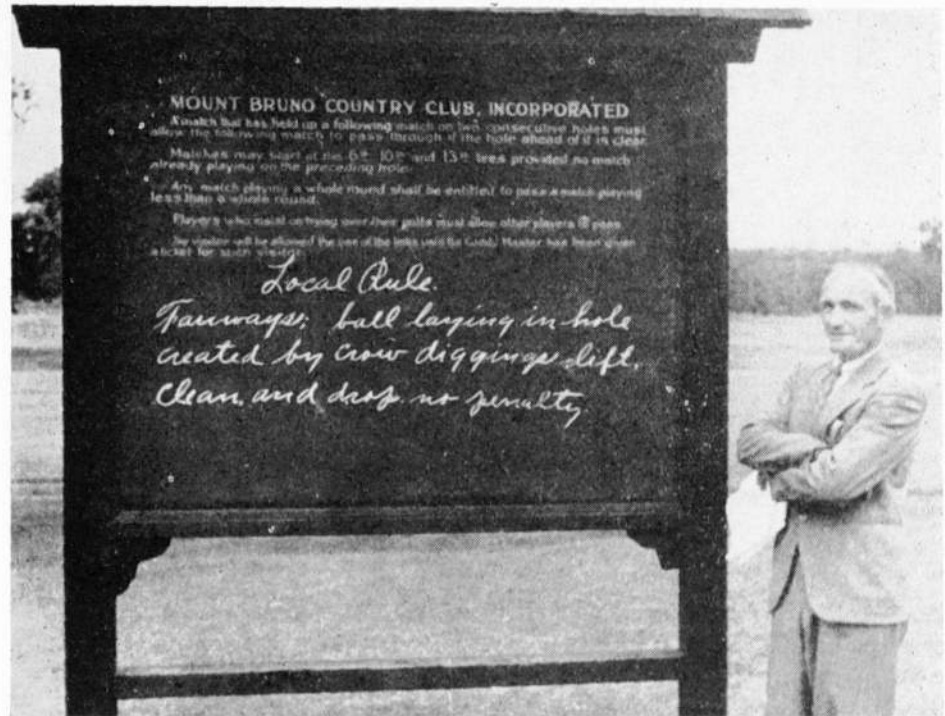 MOUNT BRUNO COUNTRY CLUB, INCORPORATED
A match that has held up a following match on two consecutive holes must
allow the following match to pass through if the hole ahead of it is clear
Matches may start at the 6th 10th and 13th tees provided no match
already playing on the preceding hole.
Any match playing a whole round shall be entitled to pass a match playing
less than a whole round.
Players who insist on trying over their putts must allow other players to pass
No visitor will be allowed the use of the links until the Caddy Master has been given
a ticket for such visitor.
Local Rule.
Fairways: ball laying in hole
created by crow diggings lift,
clean and drop no penalty